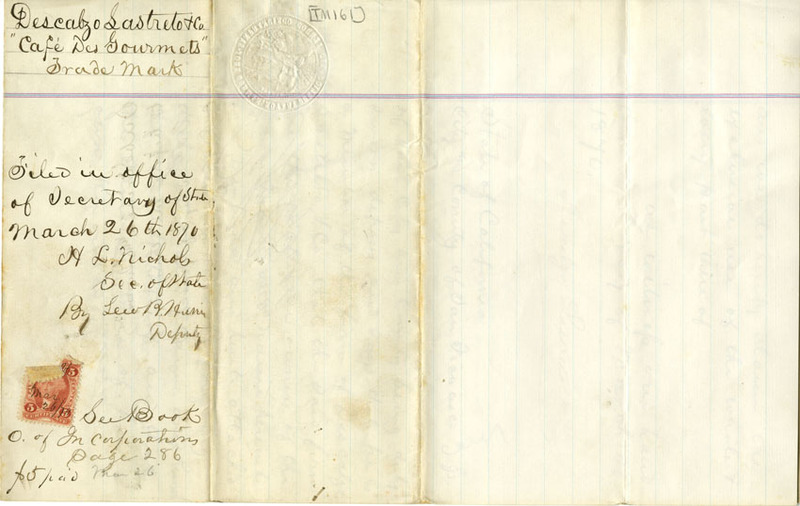 Descalzo Lastreto & Co
"Café Des Gourmets"
Trade Mark
[TM161]
Filed in office
of Secretary of State
March 26th 1870
H L. Nichols
Sec. of State
By Lew B. Harris
Deputy
5
Mar
26
5
5
See Book
C. of Incorporations
Page 286
$5 paid Mar 26